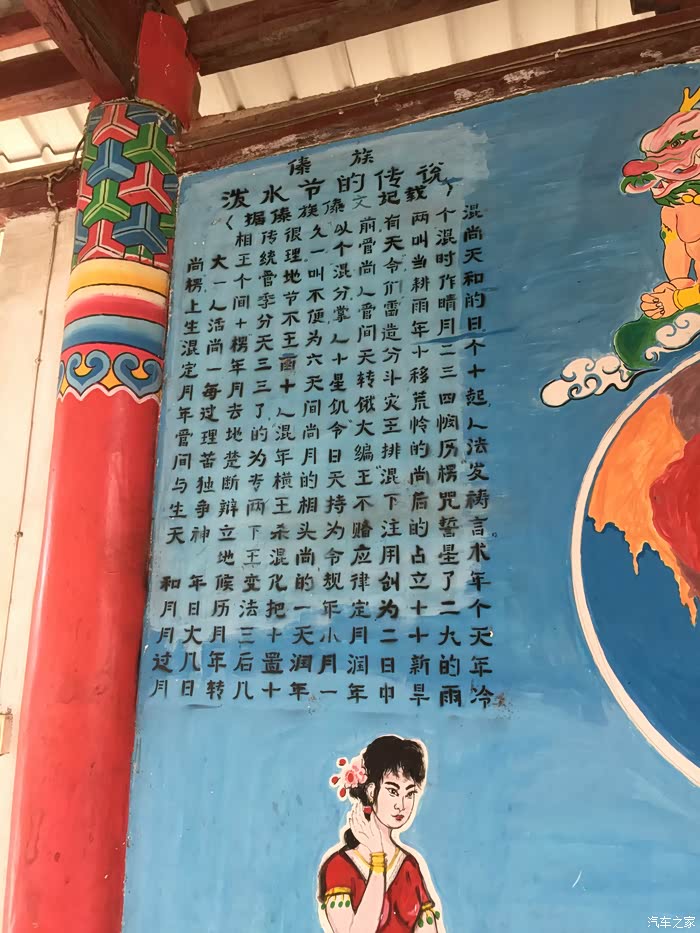 傣族
泼水节的传说
〈据傣族傣文记载〉
相传很久以前有两个混
尚大王统理一个管天叫混尚
楞一个管地叫混尚令当时天
上人间季节不分人们耕作和
生活十分不便掌管雷雨晴的
混尚楞天王为人间造年月日
定一年三酉六十天分十二个
月每月三十天星转斗移三十
年过去了人间饥饿灾荒四起
管理地的混尚令大王怜悯人
间苦楚为年月日编排的历法
与独断专横的天王混尚楞发
生争辩两王相持不下后咒祷
天神立下杀头为赌注的誓言
地王混尚令应用占星术
和年候变化的规律创立了年
月日历法把一年定为十二个
月大月三十天小月二十九天
过几年后置润月润日新的年
月日转几十年一年中旱雨冷
汽车之家